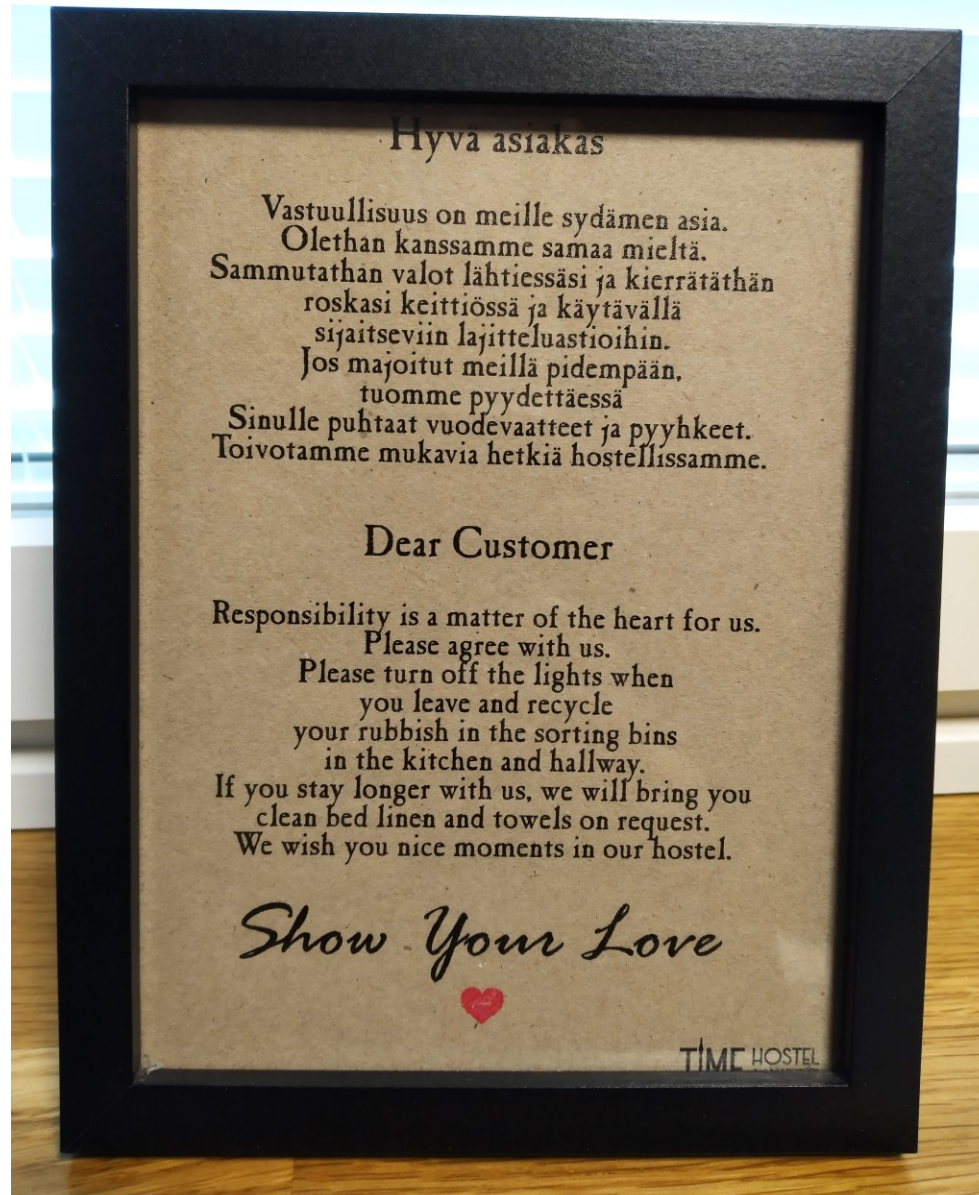 Hyvä asiakas
Vastuullisuus on meille sydämen asia.
Olethan kanssamme samaa mieltä.
Sammutathan valot lähtiessäsi ja kierrätäthän
roskasi keittiössä ja käytävällä
sijaitseviin lajitteluastioihin.
Jos majoitut meillä pidempään,
tuomme pyydettäessä
Sinulle puhtaat vuodevaatteet ja pyyhkeet.
Toivotamme mukavia hetkiä hostellissamme.
Dear Customer
Responsibility is a matter of the heart for us.
Please agree with us.
Please turn off the lights when
you leave and recycle
your rubbish in the sorting bins
in the kitchen and hallway.
If you stay longer with us, we will bring you
clean bed linen and towels on request.
We wish you nice moments in our hostel.
Show Your Love
TIME HOSTEL